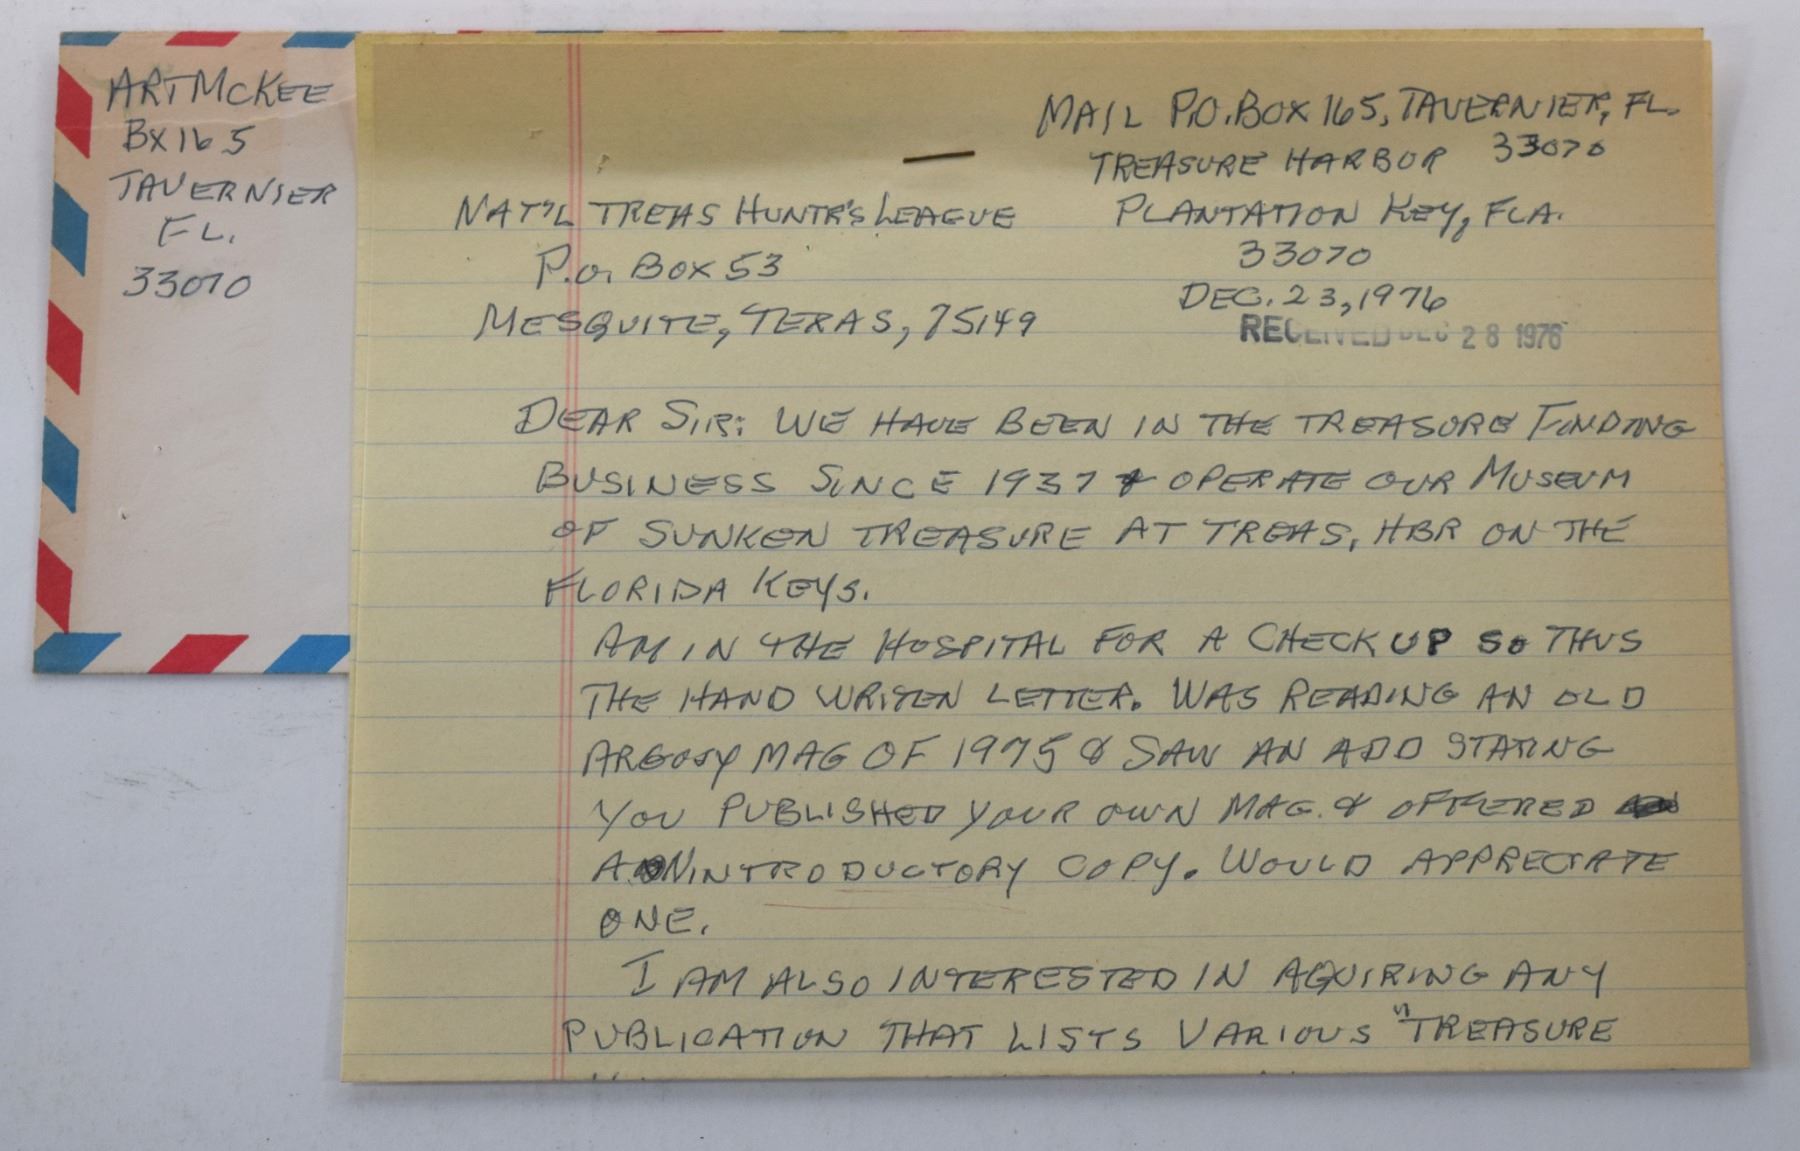 ART MCKEE
BX 165
TAVERNIER
FL.
33070
MAIL P.O. BOX 165, TAVERNIER, FL.
TREASURE HARBOR 33070
PLANTATION KEY, FLA.
33070
DEC. 23, 1976
RECEIVED DEC 28 1976
NAT'L TREAS HUNTR'S LEAGUE
P.O. BOX 53
MESQUITE, TEXAS, 75149
DEAR SIR: WE HAVE BEEN IN THE TREASURE FINDING
BUSINESS SINCE 1937 & OPERATE OUR MUSEUM
OF SUNKEN TREASURE AT TREAS, HBR ON THE
FLORIDA KEYS.
AM IN THE HOSPITAL FOR A CHECK UP SO THUS
THE HAND WRITEN LETTER. WAS READING AN OLD
ARGOSY MAG OF 1975 & SAW AN ADD STATING
YOU PUBLISHED YOUR OWN MAG. & OFFERED
AN INTRODUCTORY COPY. WOULD APPRECIATE
ONE.
I AM ALSO INTERESTED IN AQUIRING ANY
PUBLICATION THAT LISTS VARIOUS "TREASURE